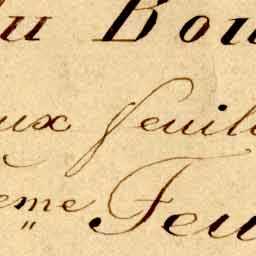 du Bou
ux feuill
eme Feu